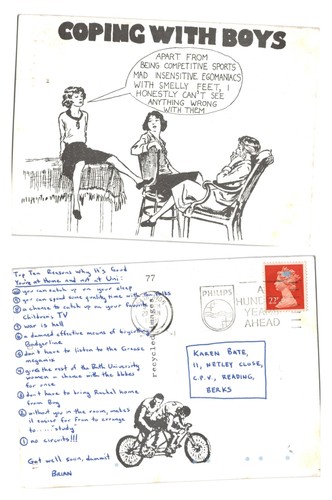 COPING WITH BOYS
APART FROM
BEING COMPETITIVE SPORTS
MAD INSENSITIVE EGOMANIACS
WITH SMELLY FEET, I
HONESTLY CAN'T SEE
ANYTHING WRONG
WITH THEM
Top Ten Reasons Why It's Good
You're at Home and not at Uni:
⑩ you can catch up on your sleep
⑨ you can spend some quality time with
⑧ a chance to catch up on your favourite
Children's TV
⑦ war is hell
⑥ a damned effective means of boycotting
Badgerline
⑤ don't have to listen to the Grease
megamix
④ gives the rest of the Bath University
women a chance with the blokes
for once
③ don't have to bring Rachel home
from Bog
② without you in the room, makes
it easier for Fran to arrange
to ......"study"
① no circuits!!!
Get well soon, dammit
BRIAN
77
recycled
PHILIPS
A
HUND
YEA
AHEAD
22
KAREN BATE,
11, NETLEY CLOSE,
C.P.V., READING,
BERKS